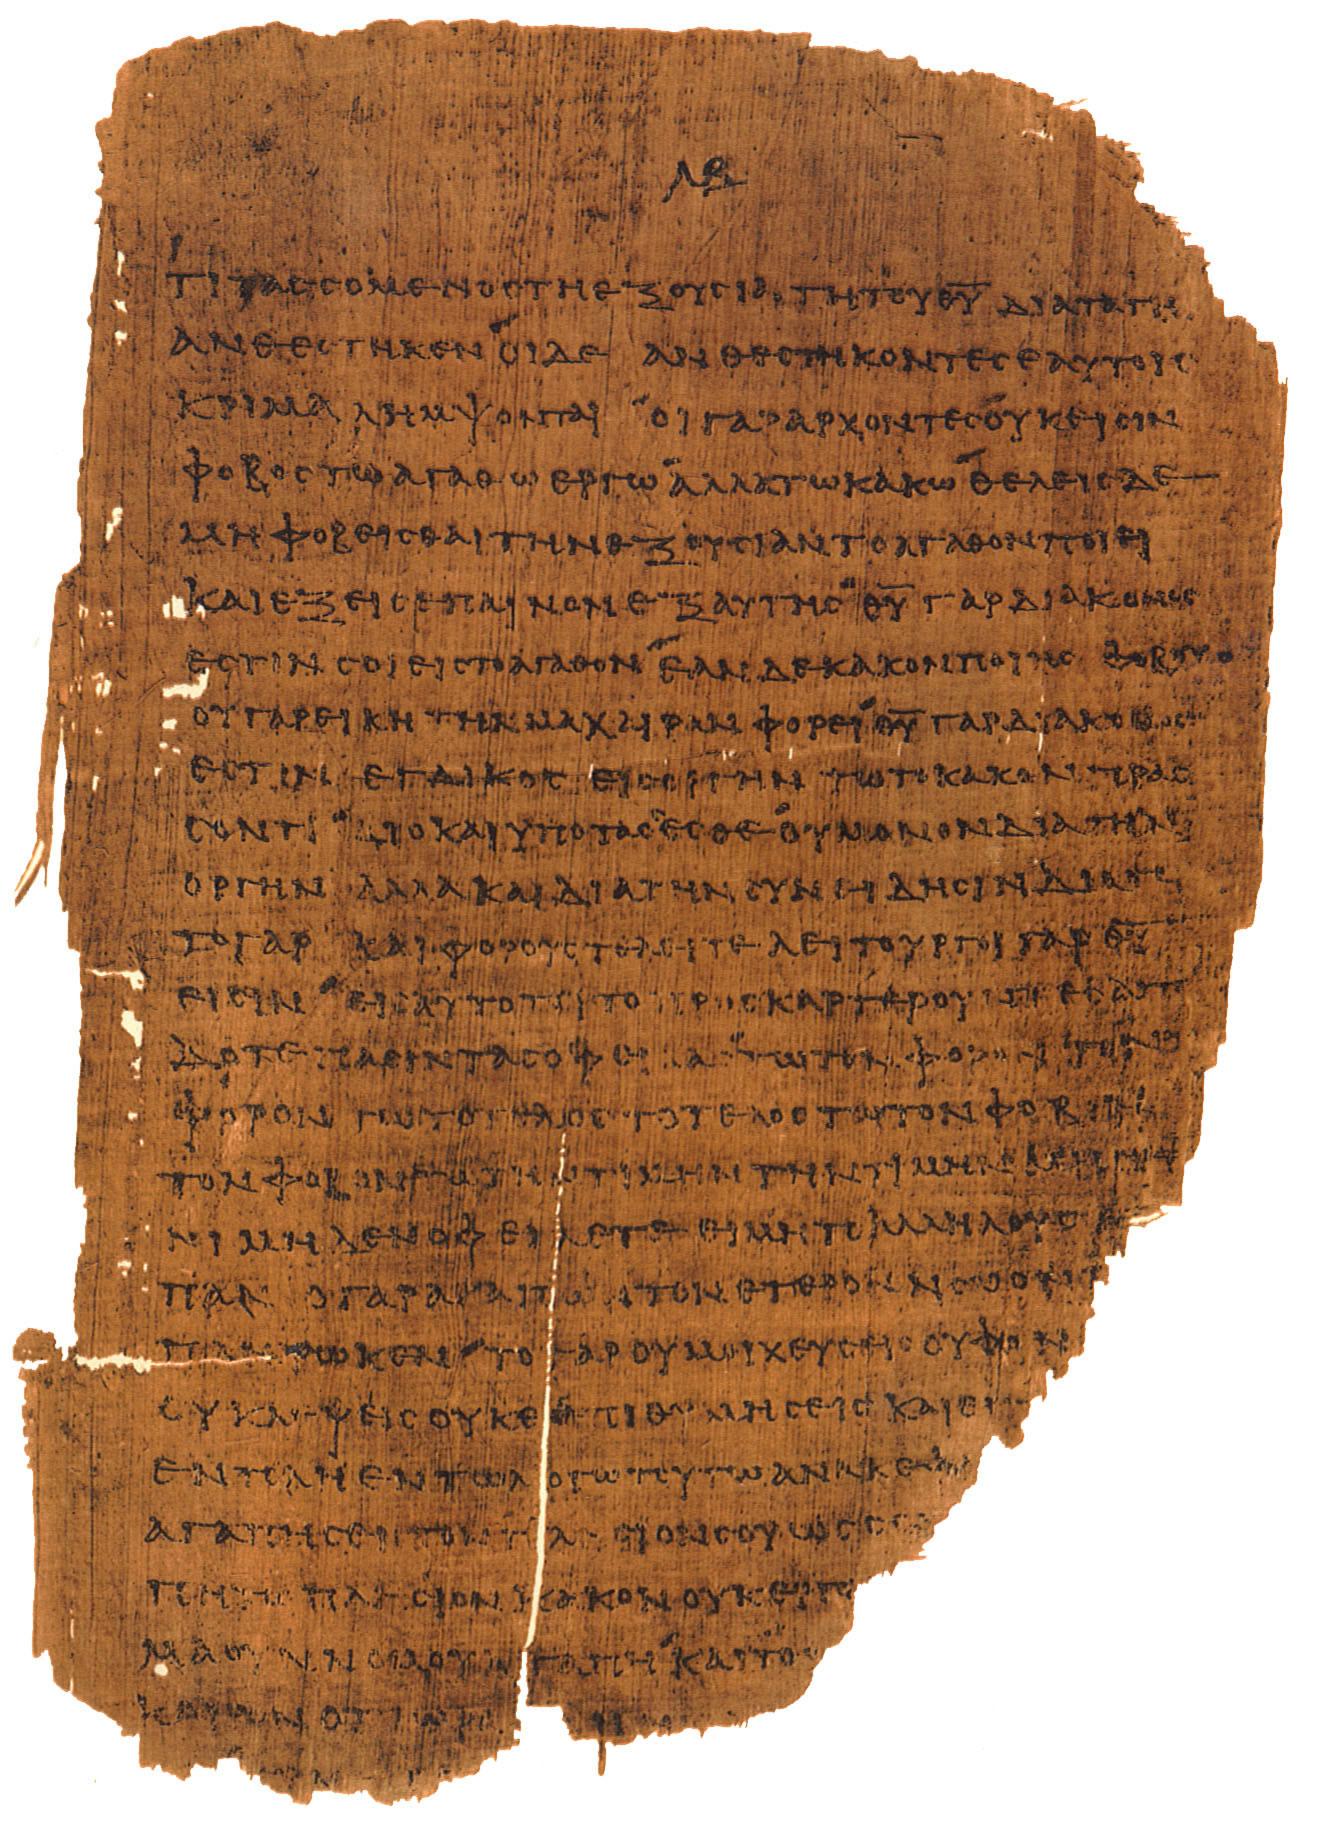 ΛΒ
ΤΙΤΑΣΣΟΜΕΝΟΣ ΤΗ ΕΞΟΥΣΙΑ ΤΗ ΤΟΥ ΘΥ ΔΙΑΤΑΓΗ
ΑΝΘΕΣΤΗΚΕΝ ΟΙ ΔΕ ΑΝΘΕΣΤΗΚΟΝΤΕΣ ΕΑΥΤΟΙΣ
ΚΡΙΜΑ ΛΗΜΨΟΝΤΑΙ ΟΙ ΓΑΡ ΑΡΧΟΝΤΕΣ ΟΥΚ ΕΙΣΙΝ
ΦΟΒΟΣ ΤΩ ΑΓΑΘΩ ΕΡΓΩ ΑΛΛΑ ΤΩ ΚΑΚΩ ΘΕΛΕΙΣ ΔΕ
ΜΗ ΦΟΒΕΙΣΘΑΙ ΤΗΝ ΕΞΟΥΣΙΑΝ ΤΟ ΑΓΑΘΟΝ ΠΟΙΕΙ
ΚΑΙ ΕΞΕΙΣ ΕΠΑΙΝΟΝ ΕΞ ΑΥΤΗΣ ΘΥ ΓΑΡ ΔΙΑΚΟΝΟΣ
ΕΣΤΙΝ ΣΟΙ ΕΙΣ ΤΟ ΑΓΑΘΟΝ ΕΑΝ ΔΕ ΚΑΚΟΝ ΠΟΙΗΣ
ΟΥ ΓΑΡ ΕΙΚΗ ΤΗΝ ΜΑΧΑΙΡΑΝ ΦΟΡΕΙ ΘΥ ΓΑΡ ΔΙΑΚΟΝΟΣ
ΕΣΤΙΝ ΕΓΔΙΚΟΣ ΕΙΣ ΟΡΓΗΝ ΤΩ ΤΟ ΚΑΚΟΝ ΠΡΑΣ
ΣΟΝΤΙ ΔΙΟ ΚΑΙ ΥΠΟΤΑΣΕΣΘΕ ΟΥ ΜΟΝΟΝ ΔΙΑ ΤΗΝ
ΟΡΓΗΝ ΑΛΛΑ ΚΑΙ ΔΙΑ ΤΗΝ ΣΥΝΕΙΔΗΣΙΝ ΔΙΑ
ΤΟ ΓΑΡ ΚΑΙ ΦΟΡΟΥΣ ΤΕΛΕΙΤΕ ΛΕΙΤΟΥΡΓΟΙ ΓΑΡ ΘΥ
ΕΙΣΙΝ ΕΙΣ ΑΥΤΟ ΤΟΥΤΟ ΠΡΟΣΚΑΡΤΕΡΟΥ
ΔΟΤΕ ΠΑΣΙΝ ΤΑΣ ΟΦ ΤΩ ΤΟΝ ΦΟΡΟΝ ΤΟΝ
ΦΟΡΟΝ ΤΩ ΤΟ ΤΕΛΟΣ ΤΟ ΤΕΛΟΣ ΤΩ ΤΟΝ ΦΟΒΟΝ
ΤΟΝ ΦΟΒΟΝ ΤΩ ΤΗΝ ΤΙΜΗΝ ΤΗΝ ΤΙΜΗΝ ΜΗΔΕ
ΝΙ ΜΗΔΕΝ ΟΦΕΙΛΕΤΕ ΕΙ ΜΗ ΤΟ ΑΛΛΗΛΟΥΣ
ΠΑΝ Ο ΓΑΡ ΑΓΑΠΩΝ ΤΟΝ ΕΤΕΡΟΝ ΝΟΜΟΝ
ΠΛΗΡΩΚΕΝ ΤΟ ΓΑΡ ΟΥ ΜΟΙΧΕΥΣΕΙΣ ΟΥ ΦΟΝ
ΟΥ ΚΛΕΨΕΙΣ ΟΥΚ ΕΠΙΘΥΜΗΣΕΙΣ ΚΑΙ ΕΙ
ΕΝΤΟΛΗ ΕΝ ΤΩ ΛΟΓΩ ΤΟΥΤΩ ΑΝΑΚΕΦ
ΑΓΑΠΗΣΕΙΣ ΤΟΝ ΠΛΗΣΙΟΝ ΣΟΥ ΩΣ ΣΕ
ΠΗ ΤΩ ΠΛΗΣΙΟΝ ΚΑΚΟΝ ΟΥΚ
ΜΑ ΟΥΝ ΝΟΜΟΥ Η ΑΓΑΠΗ ΚΑΙ ΤΟΥ
ΚΑΙΡΟΝ ΟΤΙ